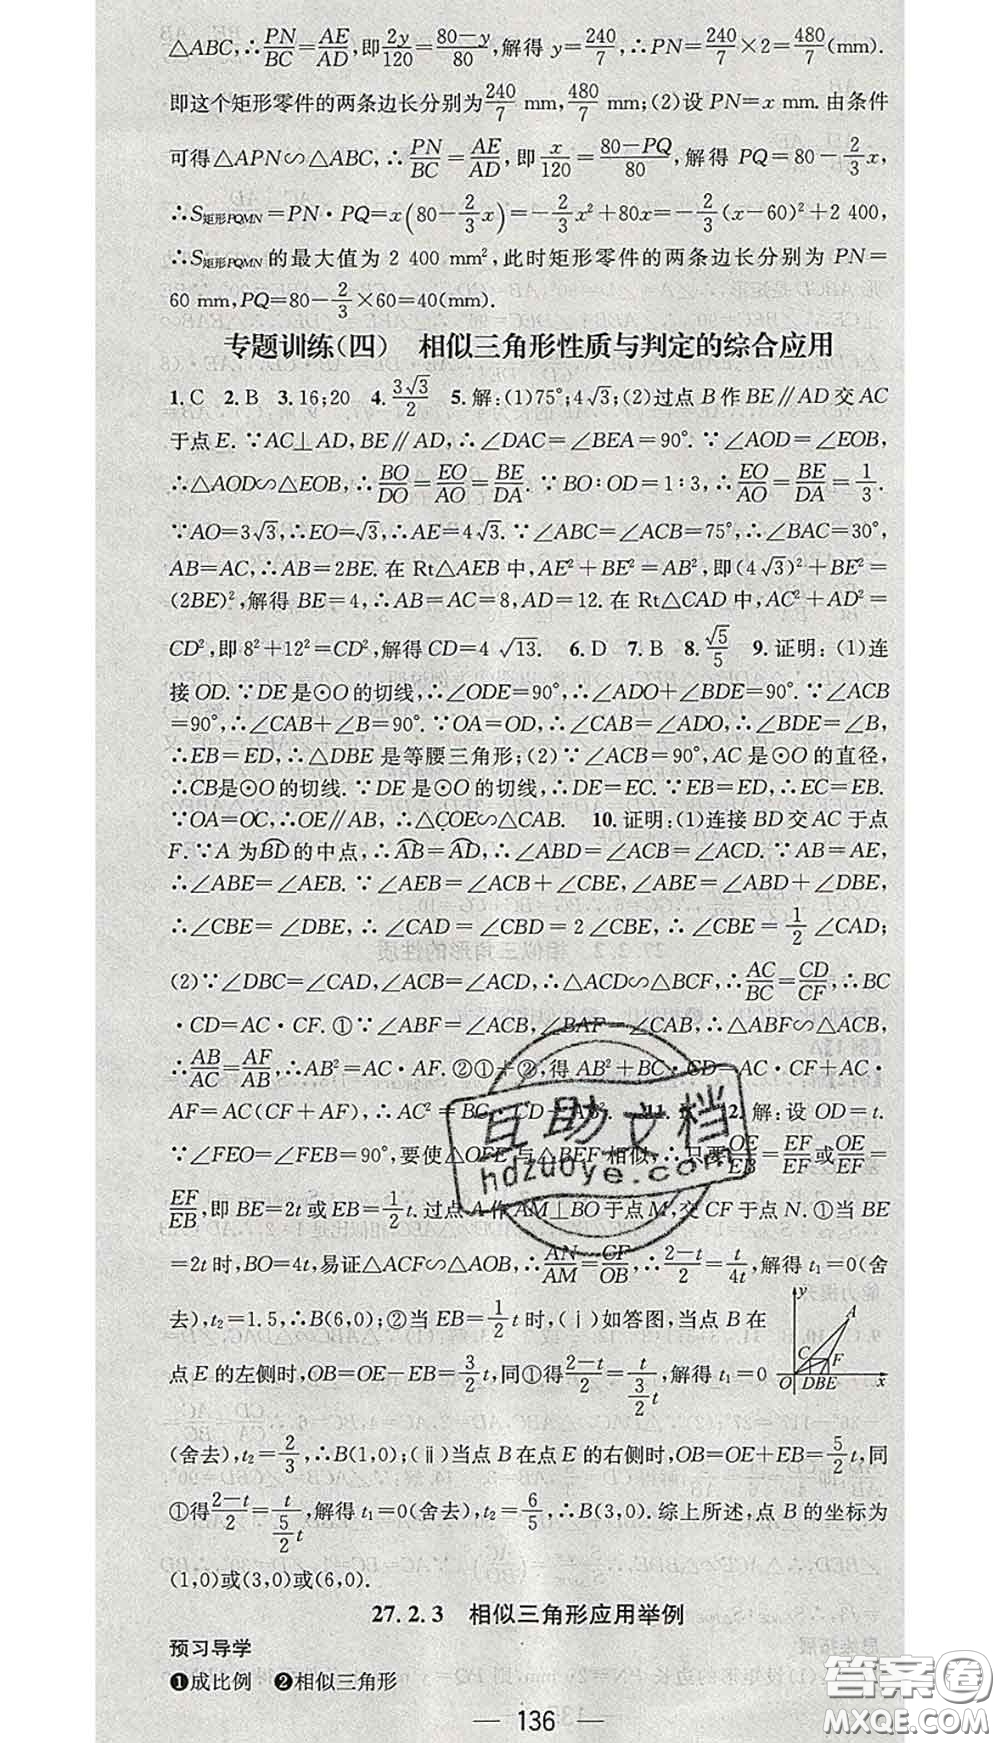 △ABC,∴PN/BC=AE/AD,即2y/120=(80-y)/80,解得 y=240/7,∴PN=240/7×2=480/7(mm).
即这个矩形零件的两条边长分别为240/7 mm,480/7 mm;(2)设 PN=x mm.由条件
可得△APN∽△ABC,∴PN/BC=AE/AD,即x/120=(80-PQ)/80,解得 PQ=80-2/3x,
∴S矩形PQMN=PN·PQ=x(80-2/3x)=-2/3x²+80x=-2/3(x-60)²+2 400,
∴S矩形PQMN的最大值为 2 400 mm²,此时矩形零件的两条边长分别为 PN=
60 mm,PQ=80-2/3×60=40(mm).
专题训练(四) 相似三角形性质与判定的综合应用
1.C 2.B 3.16;20 4.3√3/2 5.解:(1)75°;4√3;(2)过点 B 作 BE∥AD 交 AC
于点 E.∵AC⊥AD,BE∥AD,∴∠DAC=∠BEA=90°.∵∠AOD=∠EOB,
∴△AOD∽△EOB,∴BO/DO=EO/AO=BE/DA.∵BO∶OD=1∶3,∴EO/AO=BE/DA=1/3.
∵AO=3√3,∴EO=√3,∴AE=4√3.∵∠ABC=∠ACB=75°,∴∠BAC=30°,
AB=AC,∴AB=2BE.在 Rt△AEB 中,AE²+BE²=AB²,即(4√3)²+BE²=
(2BE)²,解得 BE=4,∴AB=AC=8,AD=12.在 Rt△CAD 中,AC²+AD²=
CD²,即 8²+12²=CD²,解得 CD=4√13. 6.D 7.B 8.√5/5 9.证明:(1)连
接 OD.∵DE 是⊙O 的切线,∴∠ODE=90°,∴∠ADO+∠BDE=90°.∵∠ACB
=90°,∴∠CAB+∠B=90°.∵OA=OD,∴∠CAB=∠ADO,∴∠BDE=∠B,
∴EB=ED,∴△DBE 是等腰三角形;(2)∵∠ACB=90°,AC 是⊙O 的直径,
∴CB是⊙O 的切线.∵DE 是⊙O 的切线,∴DE=EC.∵EB=ED,∴EC=EB.
∵OA=OC,∴OE∥AB,∴△COE∽△CAB. 10.证明:(1)连接 BD 交 AC 于点
F.∵A 为BD的中点,∴AB=AD,∴∠ABD=∠ACB=∠ACD.∵AB=AE,
∴∠ABE=∠AEB.∵∠AEB=∠ACB+∠CBE,∠ABE=∠ABD+∠DBE,
∴∠CBE=∠DBE,∴∠CAD=∠CBD=2∠CBE,∴∠CBE=1/2∠CAD;
(2)∵∠DBC=∠CAD,∠ACB=∠ACD,∴△ACD∽△BCF,∴AC/BC=CD/CF,∴BC
·CD=AC·CF.①∵∠ABF=∠ACB,∠BAF=∠CAB,∴△ABF∽△ACB,
∴AB/AC=AF/AB,∴AB²=AC·AF.②①+②,得 AB²+BC·CD=AC·CF+AC·
AF=AC(CF+AF),∴AC²=BC·CD+AB². 2.解:设 OD=t.
∵∠FEO=∠FEB=90°,要使△OEF与△BEF 相似,∴只要OE/EB=EF/EF或OE/EF=
EF/EB,即 BE=2t 或 EB=1/2t.过点 A 作 AM⊥BO 于点 M,交 CF 于点 N.①当 BE
=2t 时,BO=4t,易证△ACF∽△AOB,∴AN/AM=CF/OB,∴(2-t)/2=t/4t,解得 t₁=0(舍
去),t₂=1.5,∴B(6,0);②当 EB=1/2t 时,(ⅰ)如答图,当点 B 在
点 E 的左侧时,OB=OE-EB=3/2t,同①得(2-t)/2=t/(3/2t),解得 t₁=0
y A C F O D B E x
(舍去),t₂=2/3,∴B(1,0);(ⅱ)当点 B 在点 E 的右侧时,OB=OE+EB=5/2t,同
①得(2-t)/2=t/(5/2t),解得 t₁=0(舍去),t₂=6/5,∴B(3,0).综上所述,点 B 的坐标为
(1,0)或(3,0)或(6,0).
27.2.3 相似三角形应用举例
预习导学
❶成比例 ❷相似三角形
136
互助文档
hdzuoye.com
答案圈
MXQE.COM